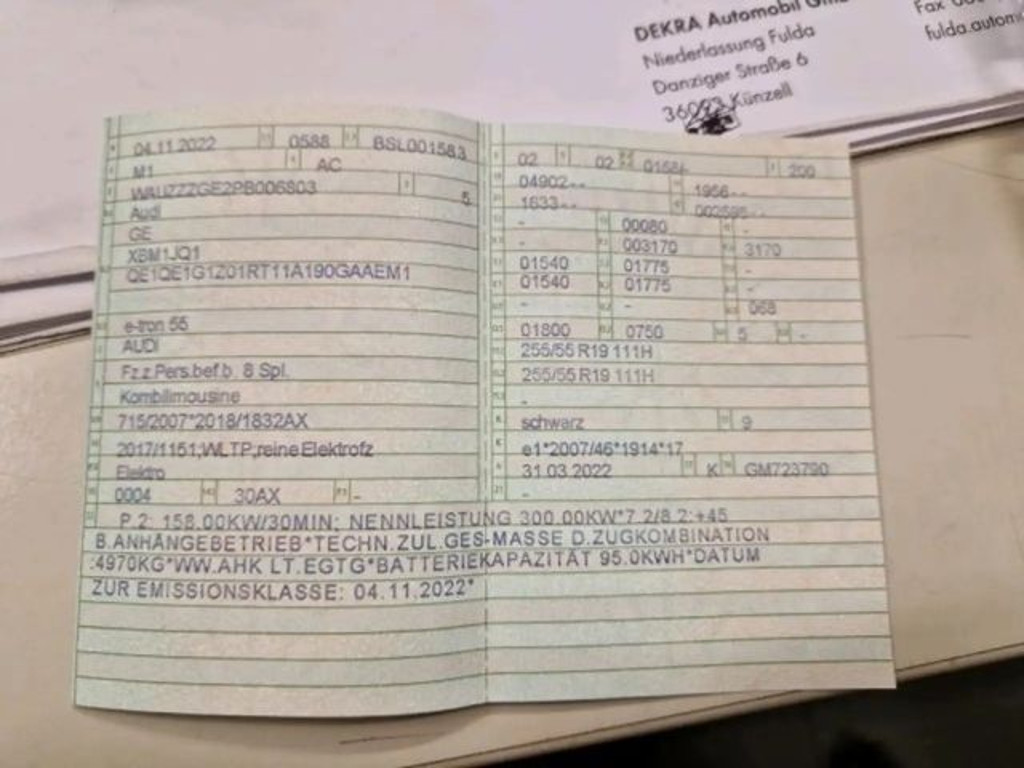 DEKRA Automobil
Niederlassung Fulda
Danziger Straße 6
36093 Künzell
Fax
fulda.autom
04.11.2022 0588 BSL001583
M1 AC
WAUZZZGE2PB006803 5
Audi
GE
XBM1JQ1
QE1QE1G1Z01RT11A190GAAEM1
e-tron 55
AUDI
Fz.z.Pers.bef.b. 8 Spl.
Kombilimousine
715/2007*2018/1832AX
2017/1151;WLTP;reine Elektrofz
Elektro
0004 30AX -
02 02 200
04902-- 1956--
1633--
- 00080 -
- 003170 3170
01540 01775 -
01540 01775 -
- - 068
01800 0750 5 -
255/55 R19 111H
255/55 R19 111H
-
schwarz 9
e1*2007/46*1914*17
31.03.2022 K GM723790
-
P.2: 158.00KW/30MIN; NENNLEISTUNG 300.00KW*7.2/8.2:+45
B.ANHÄNGEBETRIEB*TECHN.ZUL.GES-MASSE D.ZUGKOMBINATION
:4970KG*WW.AHK LT.EGTG*BATTERIEKAPAZITÄT 95.0KWH*DATUM
ZUR EMISSIONSKLASSE: 04.11.2022*